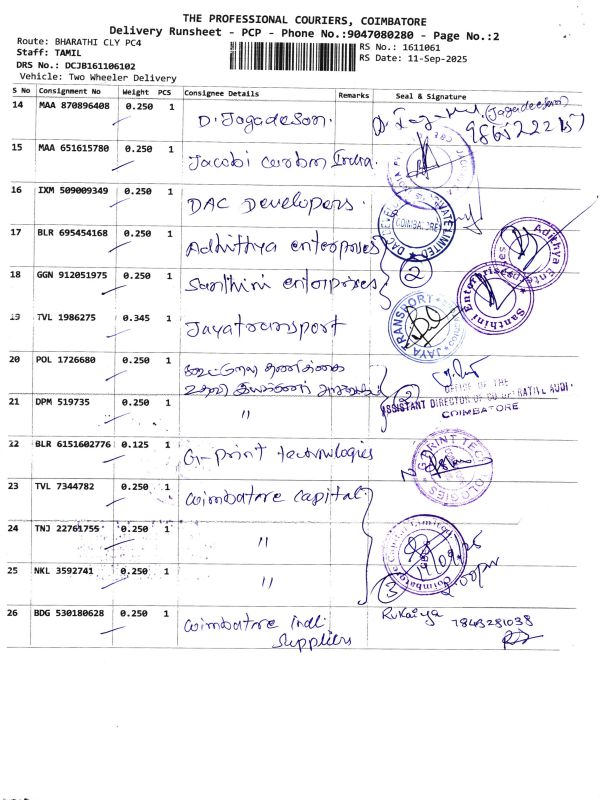 THE PROFESSIONAL COURIERS, COIMBATORE
Delivery Runsheet - PCP - Phone No.:9047080280 - Page No.:2
Route: BHARATHI CLY PC4
Staff: TAMIL
DRS No.: DCJB161106102
Vehicle: Two Wheeler Delivery
RS No.: 1611061
RS Date: 11-Sep-2025
S No Consignment No Weight PCS Consignee Details Remarks Seal & Signature
14 MAA 870896408 0.250 1 D. Jagadeson. (Jagadeeson)
15 MAA 651615780 0.250 1 Jacobi carbon India.
16 IXM 509009349 0.250 1 DAC Developers.
COIMBATORE
17 BLR 695454168 0.250 1 Adhithya enterprises
Adithya Enterprises
18 GGN 912051975 0.250 1 Santhini enterprises 2
Santhini Enterprises
19 TVL 1986275 0.345 1 Jayatransport
JAYA TRANSPORT
20 POL 1726680 0.250 1 கூட்டுறவு தணிக்கை
உதவி இயக்குனர்
OFFICE OF THE
ASSISTANT DIRECTOR OF CO OPERATIVE AUDI
COIMBATORE
21 DPM 519735 0.250 1 " 2
22 BLR 6151602776 0.125 1 G-print technologies
G-PRINT TECHNOLOGIES
23 TVL 7344782 0.250 1 Coimbatore capital
24 TNJ 22761755 0.250 1 "
Coimbatore Capital Limited
25 NKL 3592741 0.250 1 " 3
26 BDG 530180628 0.250 1 Coimbatore Indl. Rukaiya 7845281038
Suppliers